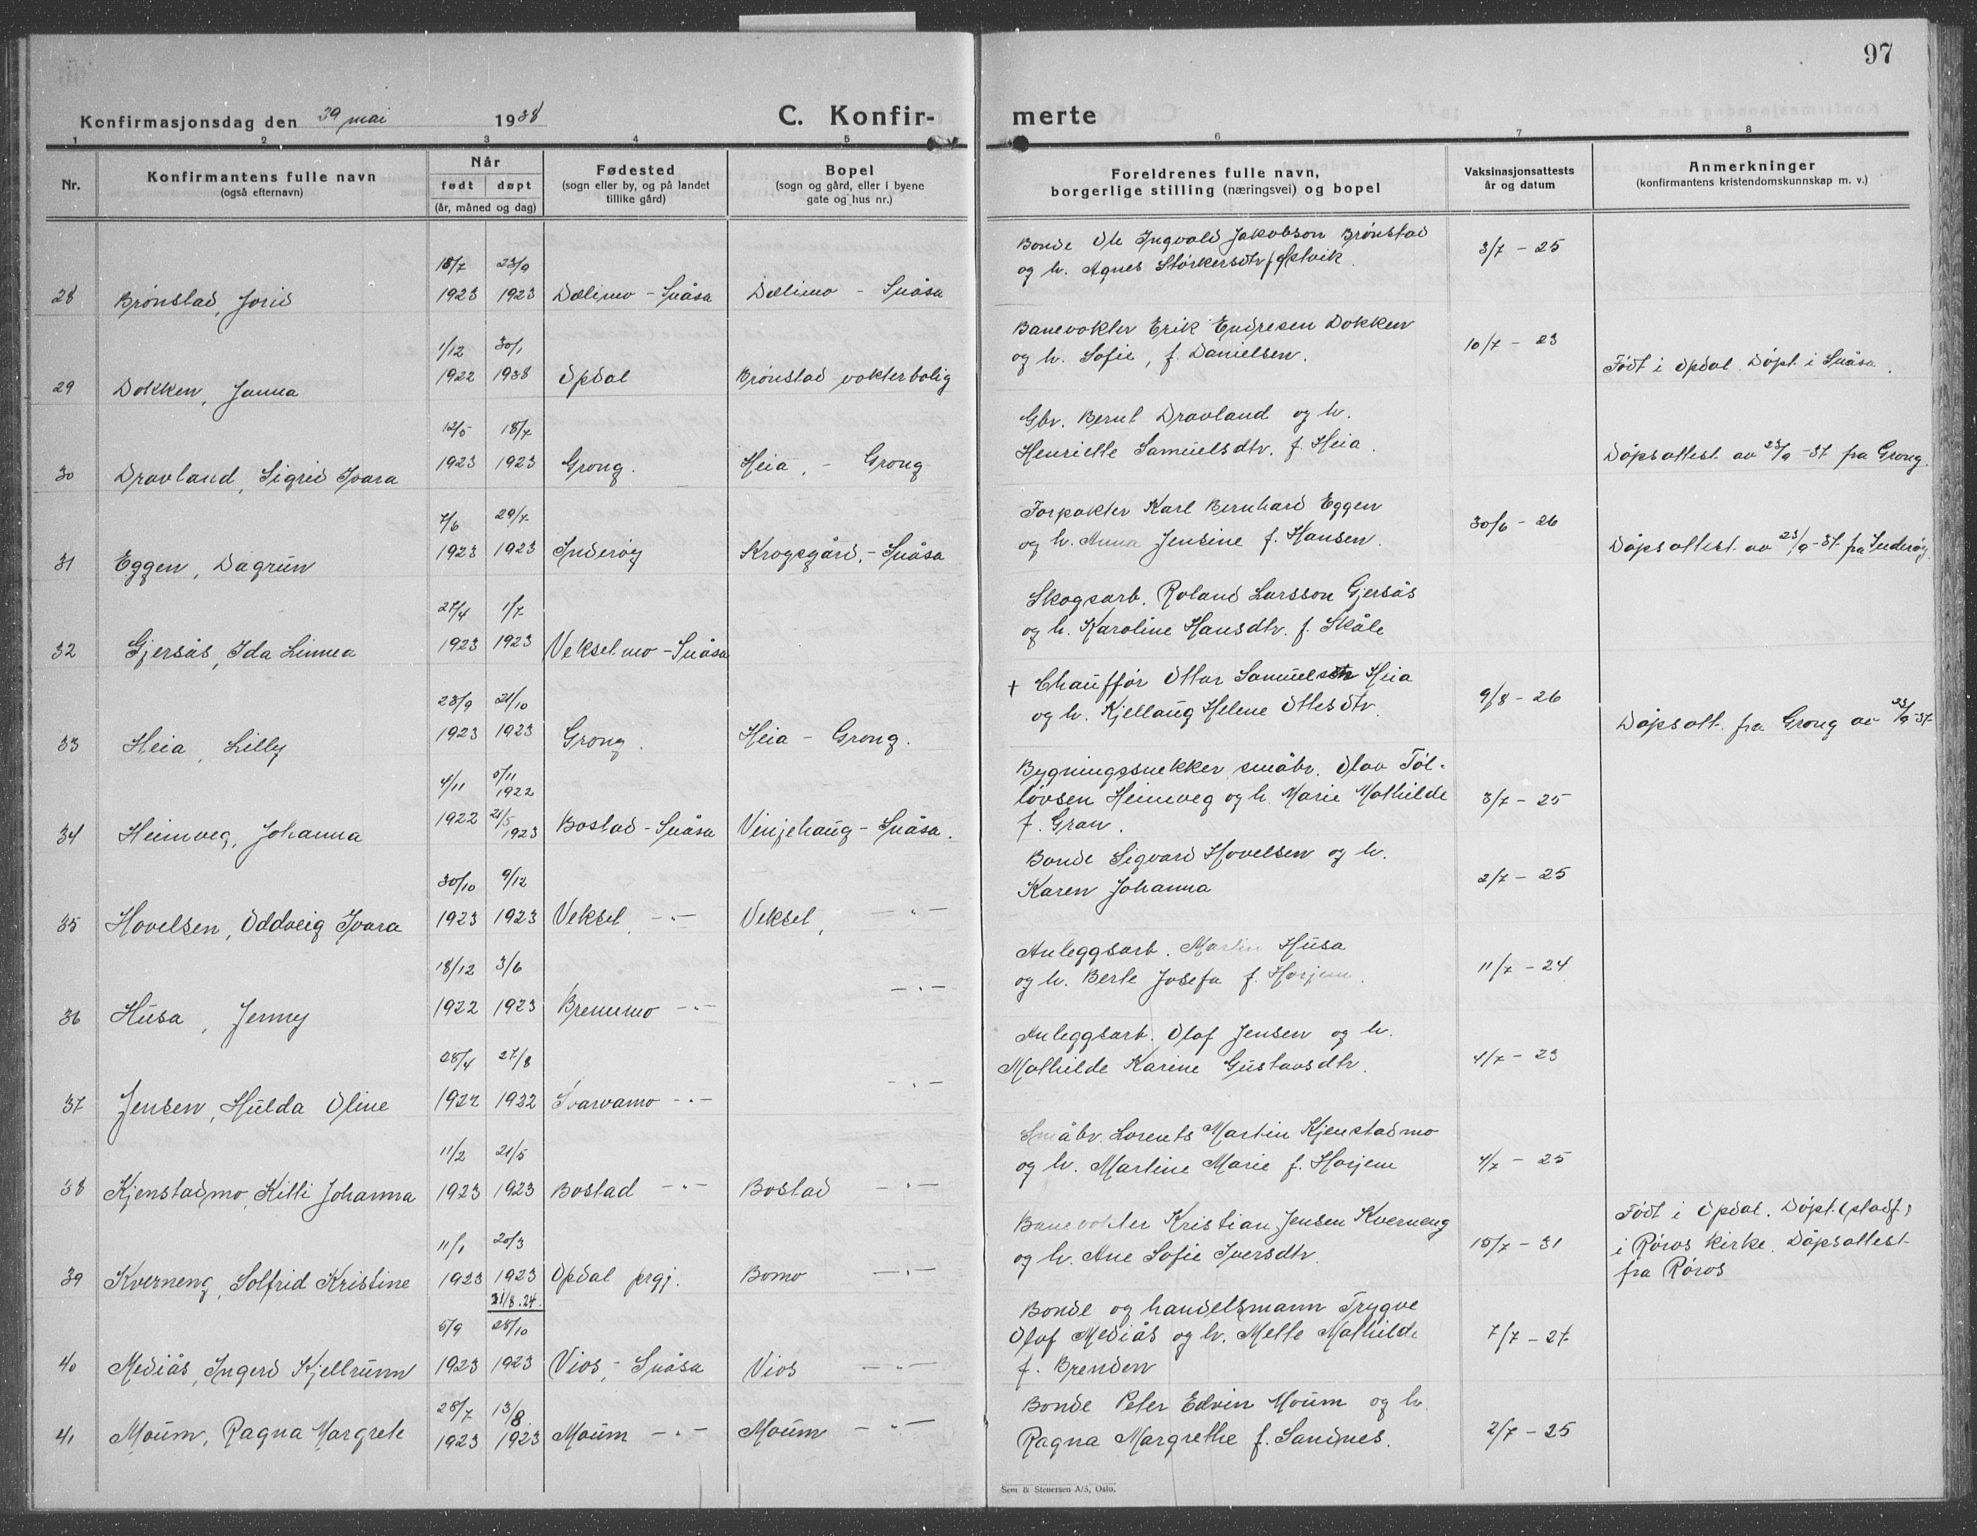 97
Konfirmasjonsdag den 29 mai 1938 C. Konfirmerte
1 2 3 4 5 6 7 8
Nr. Konfirmantens fulle navn (også efternavn) Når født døpt (år, måned og dag) Fødested (sogn eller by, og på landet tillike gård) Bopel (sogn og gård, eller i byene gate og hus nr.) Foreldrenes fulle navn, borgerlige stilling (næringsvei) og bopel Vaksinasjonsattests år og datum Anmerkninger (konfirmantens kristendomskunnskap m. v.)
Bonde Ole Ingvald Jakobson Brønstad
18/7 23/9 og h. Agnes Størkersdtr f. Østvik. 3/7 - 25
28 Brønstad, Jorid 1923 1923 Dælimo - Snåsa Dælimo - Snåsa
Banevokter Erik Endresen Dokken
1/12 30/1 og h. Sofie, f. Danielsen. 10/7 - 23
29 Dokken, Janna 1922 1938 Opdal Brønstad vokterbolig Født i Opdal. Døpt i Snåsa.
Gbr. Bernt Dravland og h.
12/5 18/7 Henriette Samuelsdtr. f. Heia.
30 Dravland, Sigrid Ivara 1923 1923 Grong. Heia, - Grong Døpsattest av 23/9 - 37 fra Grong.
Forpakter Karl Bernhard Eggen
7/6 29/7 og h. Anna Jensine f. Hansen. 30/6 - 26
31 Eggen, Dagrun 1923 1923 Inderøy Krogsgård, - Snåsa Døpsattest av 23/9 - 37 fra Inderøy.
Skogsarb. Roland Larsson Gjersås
27/4 1/7 og h. Karoline Hansdtr. f. Skåle
32 Gjersås, Ida Linnea 1923 1923 Vekselmo - Snåsa
† Chauffør Ottar Samuelsen Heia
23/9 21/10 og h. Kjellaug Helene Ottesdtr. 9/8 - 26
33 Heia, Lilly 1923 1923 Grong. Heia - Grong. Døpsatt. fra Grong av 23/9 - 37.
Bygningssnekker småbr. Olav Tøl-
4/11 5/11 1922 løvsen Heimveg og h. Marie Mathilde 3/7 - 25
34 Heimveg, Johanna 1922 21/5 1923 Bostad - Snåsa Vinjehaug - Snåsa. f. Gran.
Bonde Sigvard Hovelsen og h.
30/10 9/12 Karen Johanna 2/7 - 25
35 Hovelsen, Oddveig Ivara 1923 1923 Veksel - " - Veksel, - " -
Anleggsarb. Martin Husa
18/12 3/6 og h. Berte Josefa f. Horjem. 11/7 - 24
36 Husa, Jenny 1922 1923 Bremmo - " - - " -
Anleggsarb. Olaf Jensen og h.
28/4 27/8 Mathilde Karine Gustavsdtr. 4/7 - 23
37 Jensen, Hulda Oline 1922 1922 Svarvamo - " - - " -
Småbr. Lorents Martin Kjenstadmo
11/2 21/5 og h. Martine Marie f. Horjem 4/7 - 25
38 Kjenstadmo, Kitti Johanna 1923 1923 Bostad - " - Bostad - " -
Banevokter Kristian Jensen Kverneng Født i Opdal. Døpt (stadf.)
11/1 20/3 og h. Ane Sofie Iversdtr. 15/7 - 31 i Røros kirke. Døpsattest
39 Kverneng, Solfrid Kristine 1923 1923 Opdal prgj. Bomo - " - fra Røros
31/8.24.
Bonde og handelsmann Trygve
5/9 28/10 Olaf Mediås og h. Mette Mathilde 7/7 - 27.
40 Mediås, Ingerd Kjellrunn 1923 1923 Vios, - Snåsa Vios - " - f. Brenden
28/7 13/8 Bonde Peter Edvin Moum og h.
41 Moum, Ragna Margrete 1923 1923 Moum - " - Moum - " - Ragna Margrethe f. Sandnes. 2/7 - 25
Sem & Stenersen A/S, Oslo.